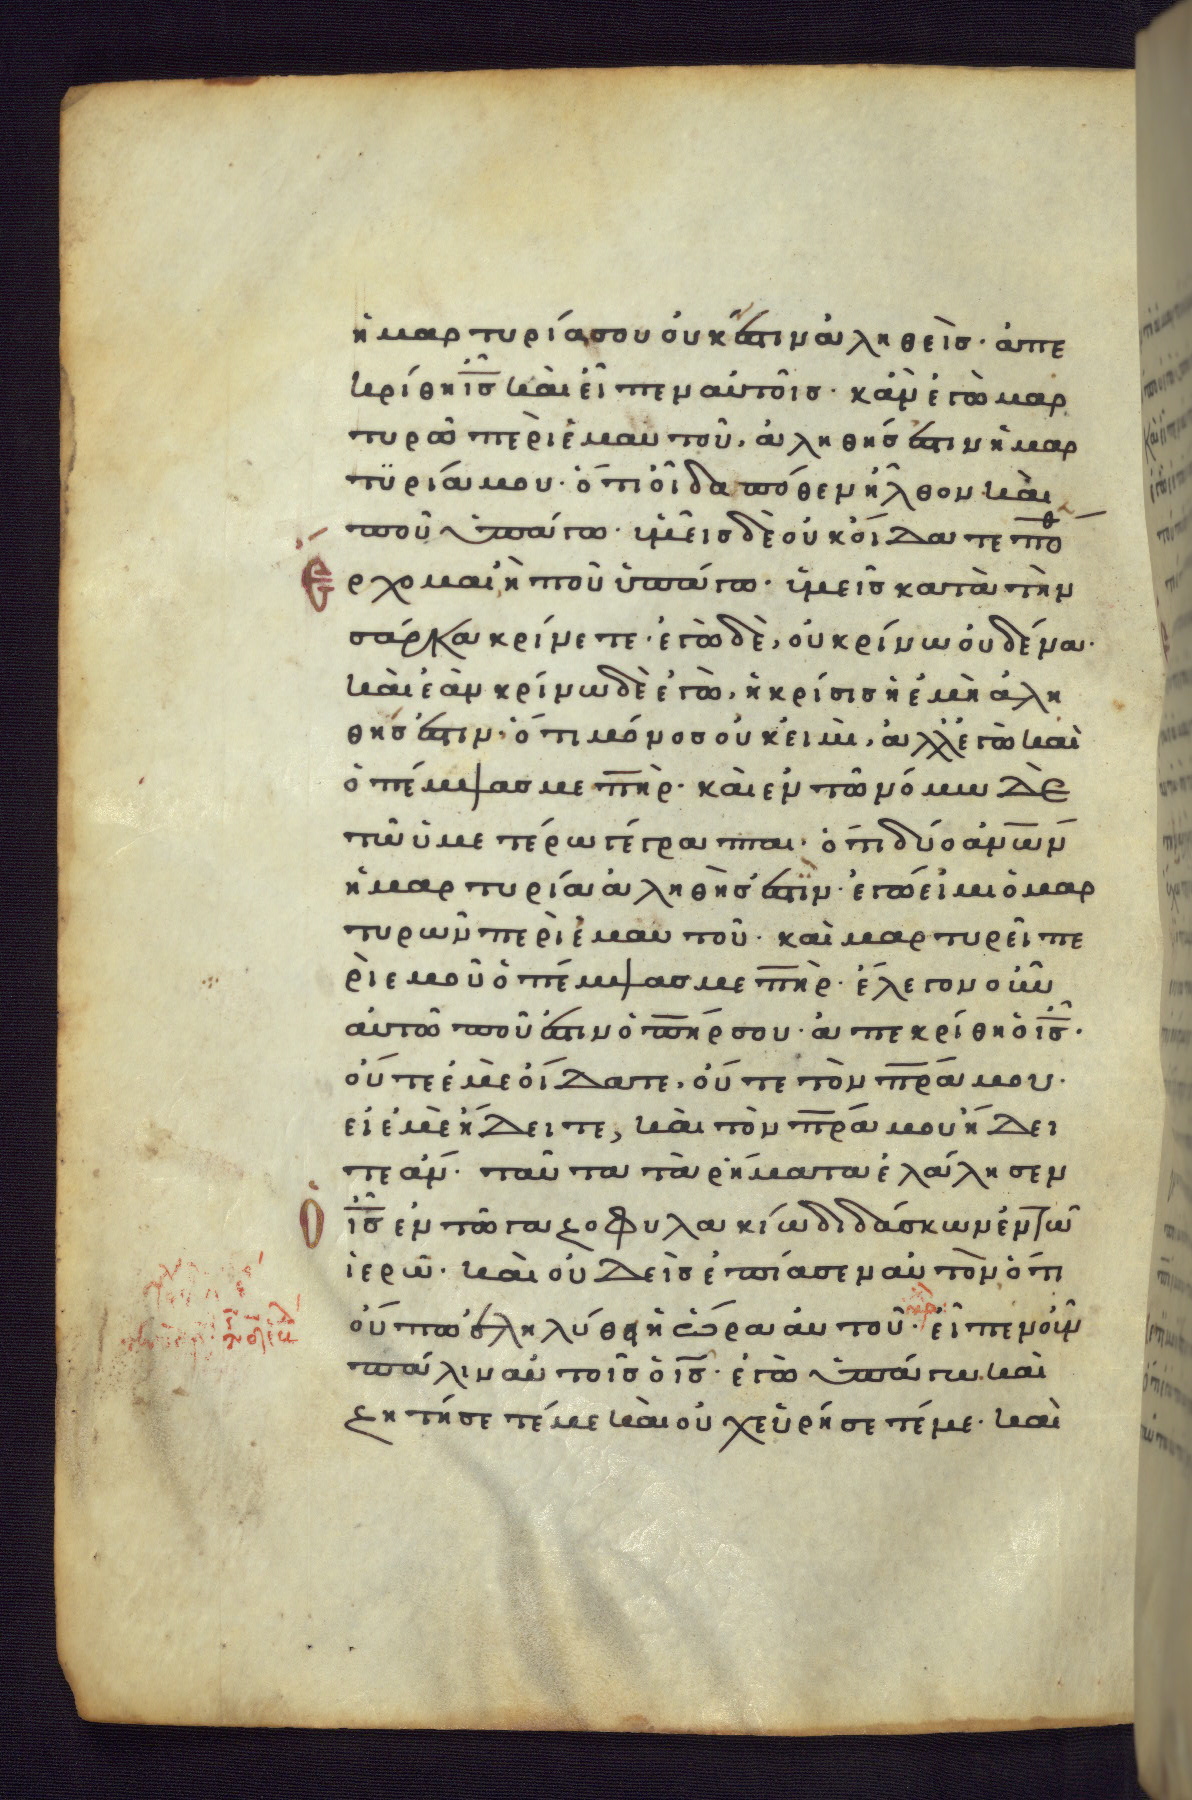 ἡ μαρτυρία σου οὐκ ἔστιν ἀληθεὶσ· ἀπε
κρίθη ἰσ̅ καὶ εἶπεν αὐτοῖσ· κἀν ἐγὼ μαρ
τυρῶ περὶ ἐμαυτοῦ, ἀληθήσ ἐστιν ἡ μαρ
τϋρία μου· ὅτι οἶδα πόθεν ἦλθον καὶ
ποῦ ὑπάγω· ὑμεῖσ δὲ οὐκ οἴδατε πόθ
Ερχομαι ἢ ποῦ ὑπάγω· ὑμεῖσ κατὰ τὴν
σάρκα κρίνετε· ἐγὼ δὲ, οὐ κρίνω οὐδένα·
καὶ ἐὰν κρίνω δὲ ἐγὼ, ἡ κρίσισ ἡ ἐμὴ ἀλη
θήσ ἐστιν· ὅτι μόνοσ οὐκ εἰμὶ, ἀλλ' ἐγὼ καὶ
ὁ πέμψασ με πη̅ρ· καὶ ἐν τῶ νόμω δὲ
τῶ ὑμετέρω γέγραπται· ὅτι δύο ἀνω̅ν
ἡ μαρτυρία ἀληθήσ ἐστιν· ἐγώ εἰμι ὁ μαρ
τυρῶν περὶ ἐμαυτοῦ· καὶ μαρτυρεῖ πε
ρὶ ἐμοῦ ὁ πέμψασ με πη̅ρ· ἔλεγον οὖν
αὐτῶ ποῦ ἐστιν ὁ πη̅ρ σου· ἀπεκρίθη ὁ ἰσ̅·
οὔτε ἐμὲ οἴδατε, οὔτε τὸν πρ̅α μου·
εἰ ἐμὲ ἤδειτε, καὶ τὸν πρ̅α μου ἤδει
τε ἄν· ταῦτα τὰ ῥήματα ἐλάλησεν
Ὁ ἰσ̅ ἐν τῶ γαζοφυλακίω διδάσκων ἐν τῶ
ἱερῶ· καὶ οὐδεὶσ ἐπίασεν αὐτὸν ὅτι
οὔπω ἐληλύθη ἡ ὥρα αὐτοῦ· εἶπεν οὖν
πάλιν αὐτοῖσ ὁ ἰσ̅· ἐγὼ ὑπάγω καὶ
ζητήσετέ με καὶ οὐχ εὑρήσετέ με· καὶ